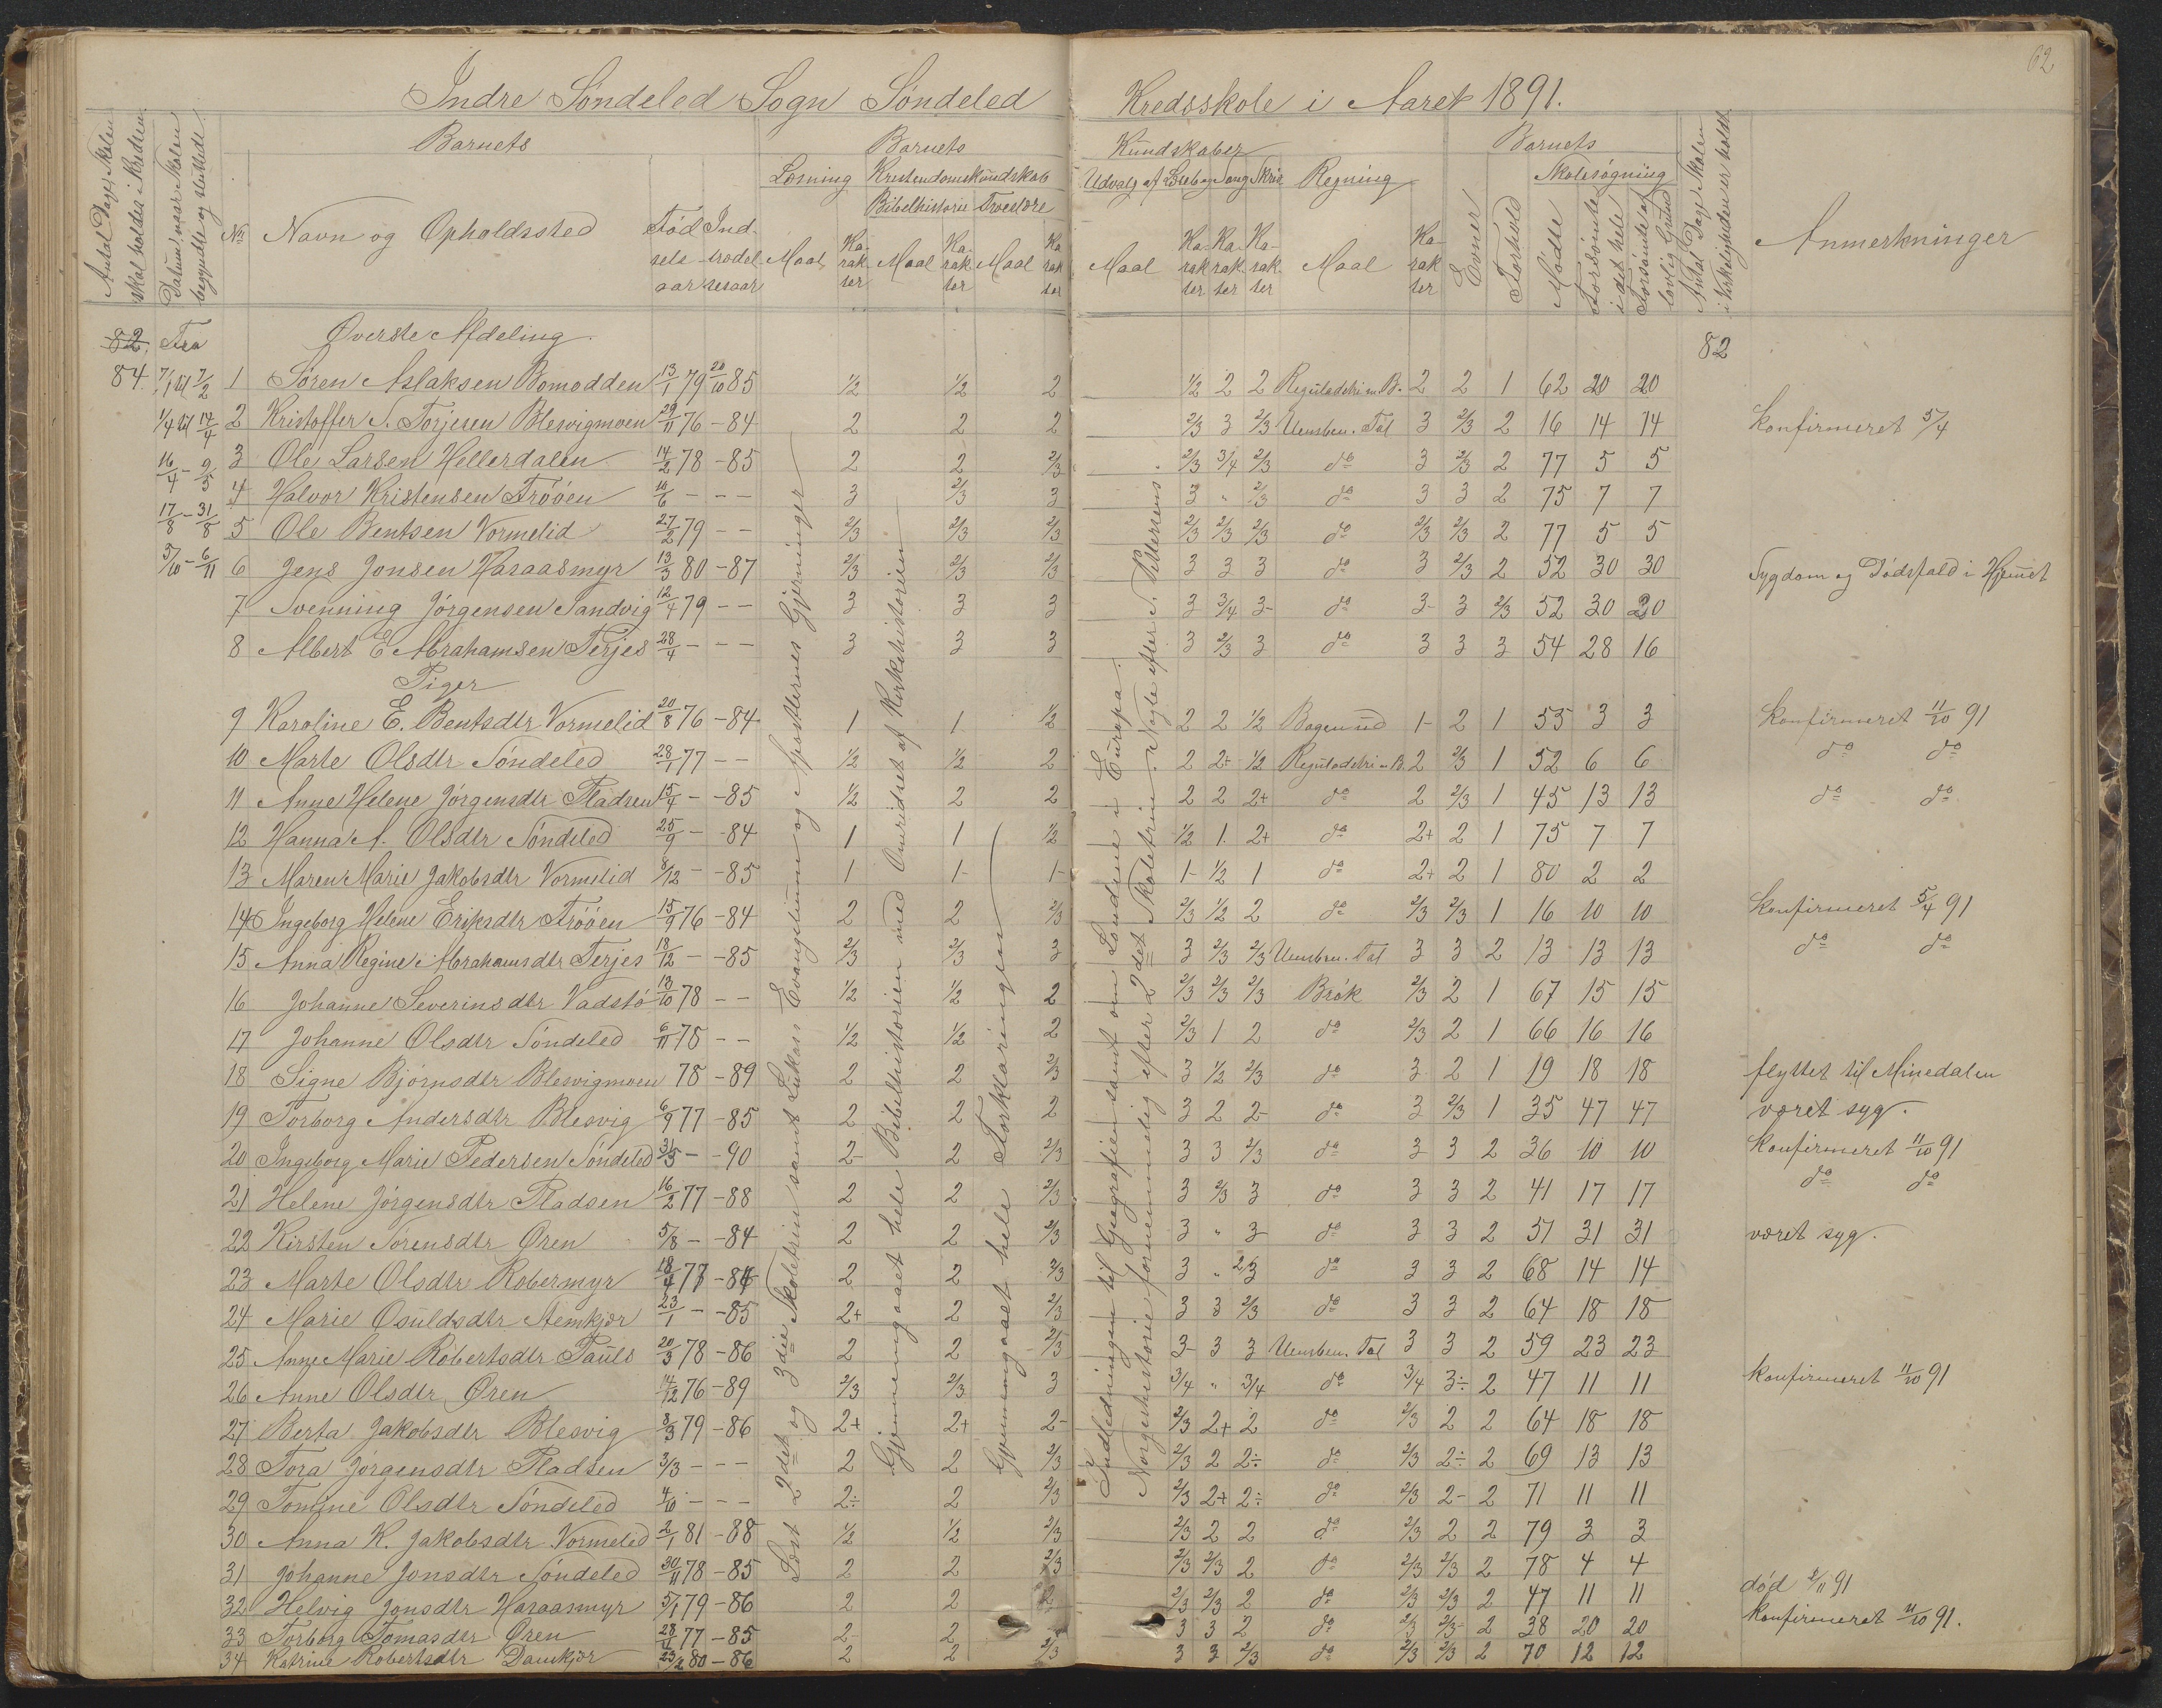 62
Indre Söndeled Sogn Söndeled Kredsskole i Aaret 1891.
Antal Dage Skolen skal holdes i Kredsen
Datum, naar Skolen begyndte og sluttede
No
Barnets
Navn og Opholdssted
Fødselsaar
Indtrædelsesaar
Barnets Kundskaber
Læsning Kristendomskundskab
Bibelhistorie Troeslære
Maal Karakter Maal Karakter Maal Karakter
Udvalg af Læseb. og Sang Skriv. Regning
Maal Karakter Karakter Karakter Maal Karakter
Barnets
Evner
Forhold
Skolesøgning
Mödte
Forsömte i det hele
Forsömte af lovlig Grund
Antal Dage Skolen i Virkeligheden er holdt
Anmerkninger
82. Fra Øverste Afdeling. 82
84. 7/1 til 7/2 1 Sören Aslaksen Bomodden 13/1 79 20/10 85 1/2 1/2 2 1/2 2 2 Reguladetri m B. 2 2 1 62 20 20
1/4 til 14/4 2 Kristoffer S. Torjesen Blesvigmoen 29/11 76 -84 2 2 2 2/3 3 2/3 Uensben. Tal 3 2/3 2 16 14 14 Konfirmeret 5/4
16/4 - 9/5 3 Ole Larsen Hellerdalen 14/2 78 -85 2 2 2/3 2/3 3/4 2/3 do 3 2/3 2 77 5 5
4 Halvor Kristensen Tröoen 10/6 - - - 3 2/3 3 3 " 2/3 do 3 3 2 75 7 7
17/8 - 31/8 5 Ole Bentsen Vormelid 27/2 79 - - 2/3 2/3 2/3 2/3 2/3 2/3 do 2/3 2/3 2 77 5 5
5/10 - 6/11 6 Jens Jonsen Haraasmyr 13/3 80 -87 2/3 2/3 2/3 3 3 3 do 3 2/3 2 52 30 30 Sygdom og Dödsfald i Hjemmet
7 Svenning Jörgensen Sandvig 12/4 79 - - 3 3 3 3 3/4 3- do 3- 3 2/3 52 30 20
8 Albert E Abrahamsen Terjes 28/4 - - - 3 3 3 3 2/3 3 do 3 3 3 54 28 16
Piger
9 Karoline E. Bentsdtr Vormelid 20/8 76 -84 1 1 1/2 2 2 1/2 Bogen ud 1- 2 1 55 3 3 Konfirmeret 11/10 91
10 Marte Olsdtr Söndeled 28/1 77 - - 1/2 1/2 2 2 2+ 1/2 Reguladetri m B. 2 2/3 1 52 6 6 do do
11 Anne Helene Jörgensdtr Pladsen 15/4 - -85 1/2 2 2 2 2 2+ do 2 2/3 1 45 13 13 do do
12 Hanna A. Olsdtr Söndeled 25/9 - -84 1 1 1/2 1/2 1. 2+ do 2+ 2 1 75 7 7
13 Maren Marie Jakobsdtr Vormelid 8/12 - -85 1 1- 1- 1- 1/2 1 do 2+ 2 1 80 2 2
14 Ingeborg Helene Eriksdtr Tröoen 15/9 76 -84 2 2 2/3 2/3 1/2 2 do 2/3 2/3 1 16 10 10 Konfirmeret 5/4 91
15 Anna Regine Abrahamsdtr Terjes 18/12 - -85 2/3 2/3 3 3 2/3 2/3 Uensben. Tal 3 3 2 13 13 13 do do
16 Johanne Severinsdtr Vadstö 13/10 78 - - 1/2 1/2 2 2/3 2/3 2/3 Brök 2/3 2 1 67 15 15
17 Johanne Olsdtr Söndeled 6/11 75 - - 1/2 1/2 2 2/3 1 2 do 2/3 2 1 66 16 16
18 Signe Björnsdtr Blesvigmoen 78 -89 2 2 2/3 3 1/2 2/3 do 3 2 1 19 18 18 flyttet til Minedalen
19 Torborg Andersdtr Blesvig 6/9 77 -85 2 2 2 3 2 2- do 3 2/3 1 35 47 47 været syg.
20 Ingeborg Marie Pedersen Söndeled 31/5 - -90 2- 2 2/3 3 3 2/3 do 3 3 2 36 10 10 Konfirmeret 11/10 91
21 Helene Jörgensdtr Pladsen 16/2 77 -88 2 2 2/3 3 2/3 3 do 3 3 2 41 17 17 do do
22 Kirsten Sorensdtr Øren 5/8 - -84 2 2 2/3 3 " 3- do 3 3 2 51 31 31 været syg.
23 Marte Olsdtr Robermyr 18/4 77 -84 2 2 2/3 3 " 2/3 do 3 3 2 68 14 14
24 Marie Osuldsdtr Stemkjær 23/1 - -85 2+ 2 2/3 3 3 2/3 do 3 3 2 64 18 18
25 Anne Marie Robertsdtr Pauls 20/3 78 -86 2 2 2/3 3- 3 3 Uensben. Tal 3 3 2 59 23 23
26 Anne Olsdtr Øren 14/12 76 -89 2/3 2/3 3 3/4 " 3/4 do 3/4 3÷ 2 47 11 11 Konfirmeret 11/10 91
27 Berta Jakobsdtr Blesvig 8/3 79 -86 2+ 2+ 2- 2/3 2+ 2 do 2/3 2 2 64 18 18
28 Tora Jörgensdtr Pladsen 3/3 - - - 2 2 2/3 2/3 2 2÷ do 2/3 2÷ 2 69 13 13
29 Tomine Olsdtr Söndeled 4/10 - - - 2÷ 2 2/3 2/3 2+ 2÷ do 2/3 2- 2 71 11 11
30 Anna K. Jakobsdtr Vormelid 2/1 81 -88 1/2 1/2 2/3 2/3 2 2 do 2/3 2 2 79 3 3
31 Johanne Jonsdtr Söndeled 30/11 78 -85 2 2 2/3 2/3 2/3 2 do 2/3 2/3 2 78 4 4
32 Helvig Jonsdtr Haraasmyr 5/1 79 -86 2 2 2/3 2/3 2 do 2/3 2/3 2 47 11 11 död 2/11 91
33 Torborg Tomasdtr Øren 28/11 77 -85 2- 2 3 3 2 do 2/3 2/3- 2 38 20 20 Konfirmeret 11/10 91.
34 Katrine Robertsdtr Damkjær 23/2 80 -86 2 2 2/3 3 3 2/3 do 2/3 2/3 2 70 12 12
Læst 2det og 3die Skoletrin samt Lukas Evangelium og Apostlernes Gjerninger
Gjennemgaaet hele Bibelhistorien med Omridset af Kirkehistorien
Gjennemgaaet hele Forklaringen
Indledningen til Geografien samt om Landene i Europa.
Norgeshistorie fornemmelig efter 2det Skoletrin. Nogle efter S. Petersens.